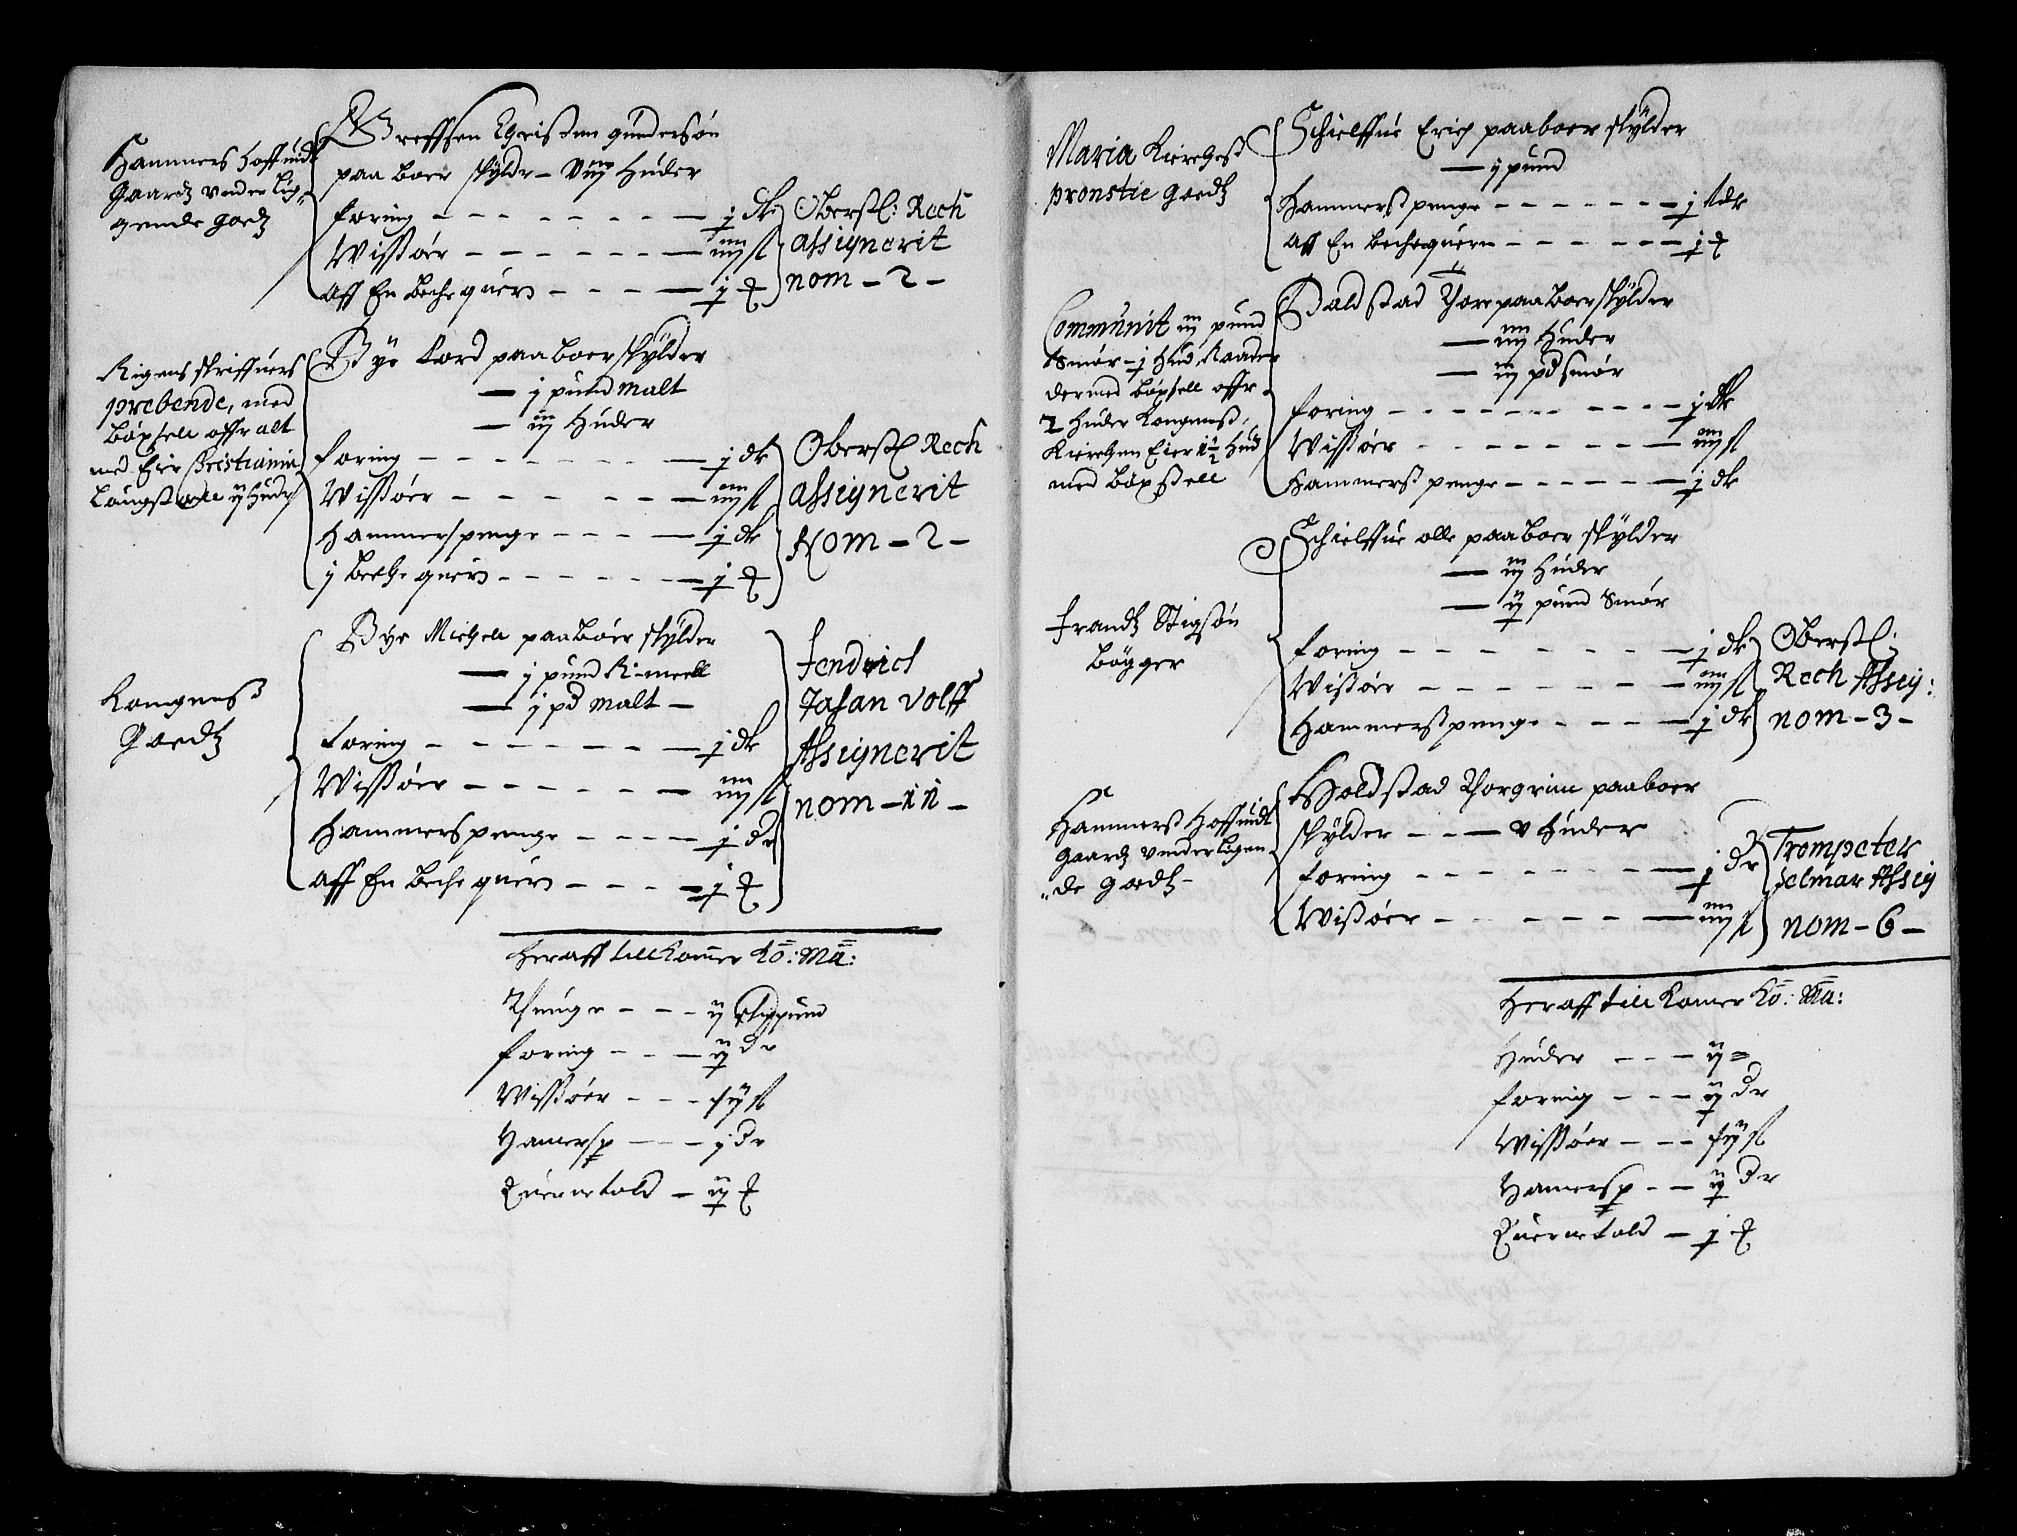 Hammers Hoffuidt
Gaardz vnder lig¬
gende goedz
Greffsen Christen gundersøn
paa boer skyldr – viij Huder
foring – – – – – – – j dr
Wissøer – – – – – – iiij s
aff En beche quern – – – – j t
Oberstl: Rech
assignerit
nom – 2 –
Rigens skriffuers
prebende, med
böxsell offr alt
med Eier Christiania
Laugstoele ij hudr
Bye Lord paaboer skylder
– j pund malt
– iij Huder
foring – – – – – – – j dr
Wissøer – – – – – – iiij s
Hammerspenge – – – – j dr
j beche quern – – – – – j t
Oberstl Rech
assignerit
Nom – 2 –
Kongens
Goedz
Bye Michell paaboer skylder
– j pund R: meell
– j pd malt –
foring – – – – – – – j dr
Wissøer – – – – – – iiij s
Hammerspenge – – – – j dr
aff En beche quern – – – – j t
fendrich
Jahan Volff
Assignerit
nom – 11 –
Heraff till komer Ko: Ma:
Thiuge – – – ij skippund
foring – – – ij dr
Wissøer – – –
Hamersp – – – j dr
Quernetold – ij t
Maria Kierches
pronstie Goedz
Schielffue Erich paaboer skylder
– j pund
Hammerspenge – – – – – – j dr
aff En bechequern – – – – – – j t
Communit iij pund
Smør – j Hud Raader
dermed böxsell offr
2 Huder Kongens,
Kierchen Eier 1½ Hud
med böxsell
Baldstad Thore paaboer skylder
– iiij Huder
– iij pd smør
foring – – – – – – – – j dr
Wissøer – – – – – – – iiij s
Hammerspenge – – – – – – j dr
Frandz Stigsøn
bögger
Schielffue olle paaboer skylder
– iij Huder
– ij pund Smør
foring – – – – – – – j dr
Wissøer – – – – – – – iiij s
Hammerspenge – – – – j dr
Oberstl:
Rech Assig:
nom – 3 –
Hammers Hoffuidt
Gaardz vnderligen
de Goedz –
Holdstad Thorgrim paaboer
skylder – – – v huder
foring – – – – – – – j dr
Wissøer – – – – – – – iiij s
Trompeter
Jelmar Assig
nom – 6 –
Heraff till Komer Ko: Ma:
Huder – – – ij =
foring – – – ij dr
Wissøer – – –
Hamersp – – ij dr
Quernetold – j t